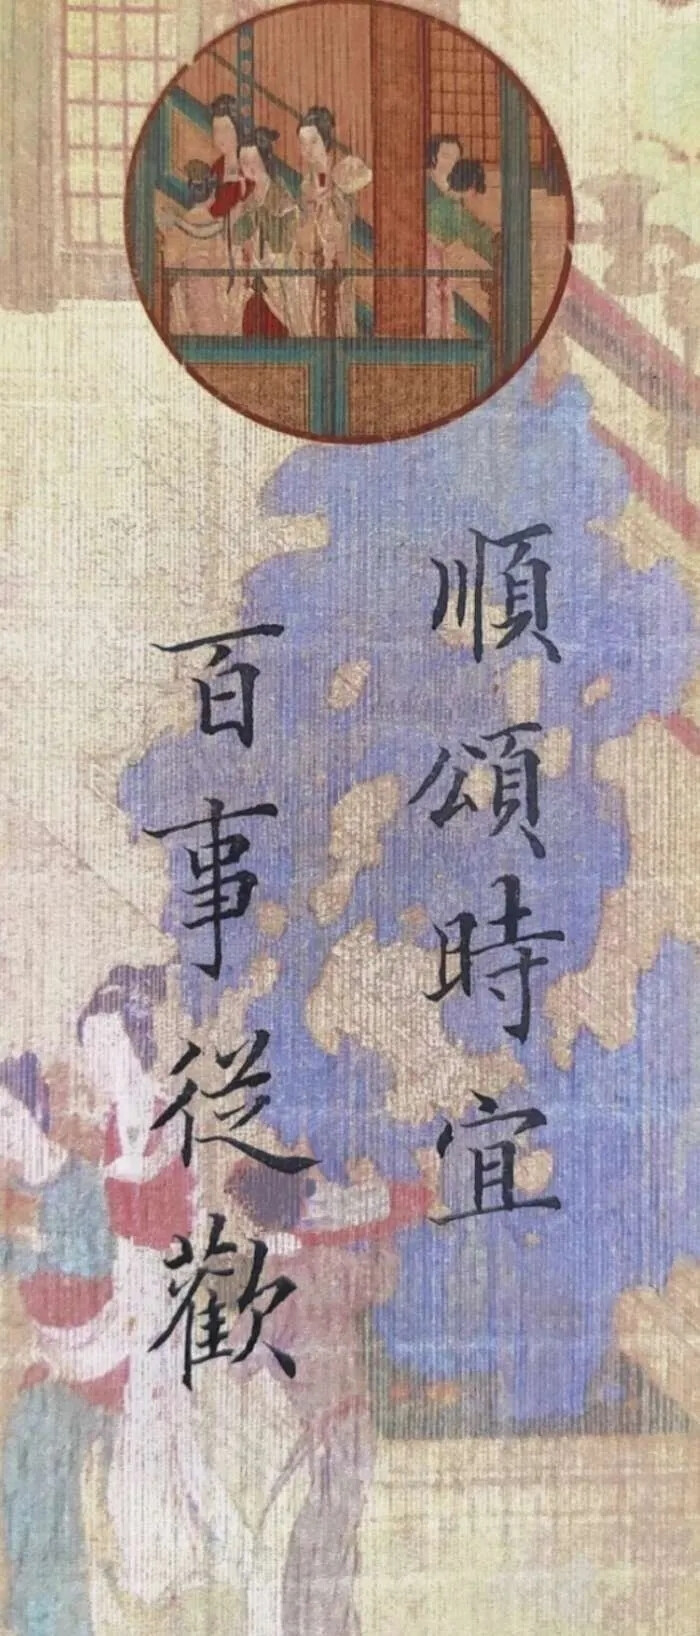 順頌時宜
百事從歡